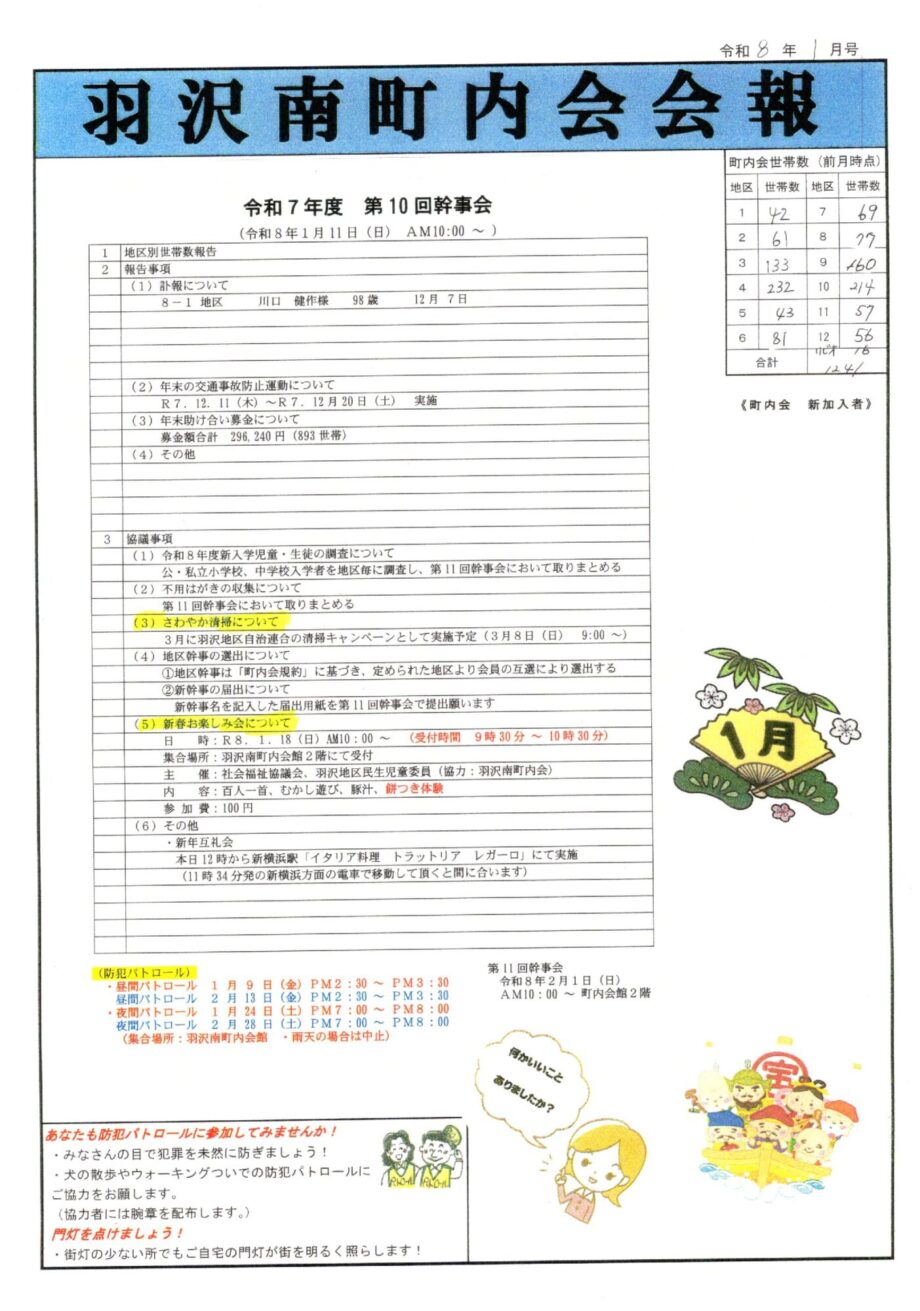 令和8年1月号
羽沢南町内会会報
町内会世帯数（前月時点）
地区 世帯数 地区 世帯数
1 42 7 69
2 61 8 77
3 133 9 260
4 232 10 214
5 43 11 57
6 81 12 56
リビオ 16
合計 1241
《町内会 新加入者》
令和7年度 第10回幹事会
（令和8年1月11日（日） AM10:00 ～ ）
1 地区別世帯数報告
2 報告事項
（1）訃報について
8－1 地区 川口 健作様 98歳 12月 7日
（2）年末の交通事故防止運動について
R7．12．11（木）～R7．12月20日（土） 実施
（3）年末助け合い募金について
募金額合計 296,240円（893世帯）
（4）その他
3 協議事項
（1）令和8年度新入学児童・生徒の調査について
公・私立小学校、中学校入学者を地区毎に調査し、第11回幹事会において取りまとめる
（2）不用はがきの収集について
第11回幹事会において取りまとめる
（3）さわやか清掃について
3月に羽沢地区自治連合の清掃キャンペーンとして実施予定（3月8日（日） 9:00 ～）
（4）地区幹事の選出について
①地区幹事は「町内会規約」に基づき、定められた地区より会員の互選により選出する
②新幹事の届出について
新幹事名を記入した届出用紙を第11回幹事会で提出願います
（5）新春お楽しみ会について
日 時：R8．1．18（日）AM10：00 ～ （受付時間 9時30分 ～ 10時30分）
集合場所：羽沢南町内会館2階にて受付
主 催：社会福祉協議会、羽沢地区民生児童委員（協力：羽沢南町内会）
内 容：百人一首、むかし遊び、豚汁、餅つき体験
参 加 費：100円
（6）その他
・新年互礼会
本日12時から新横浜駅「イタリア料理 トラットリア レガーロ」にて実施
（11時34分発の新横浜方面の電車で移動して頂くと間に合います）
1月
（防犯パトロール）
・昼間パトロール 1 月 9 日（金）PM2：30 ～ PM3：30
昼間パトロール 2 月 13 日（金）PM2：30 ～ PM3：30
・夜間パトロール 1 月 24 日（土）PM7：00 ～ PM8：00
夜間パトロール 2 月 28 日（土）PM7：00 ～ PM8：00
（集合場所：羽沢南町内会館 ・雨天の場合は中止）
第11回幹事会
令和8年2月1日（日）
AM10：00 ～ 町内会館2階
何かいいこと
ありましたか？
宝
あなたも防犯パトロールに参加してみませんか！
・みなさんの目で犯罪を未然に防ぎましょう！
・犬の散歩やウォーキングついでの防犯パトロールに
ご協力をお願します。
（協力者には腕章を配布します。）
門灯を点けましょう！
・街灯の少ない所でもご自宅の門灯が街を明るく照らします！